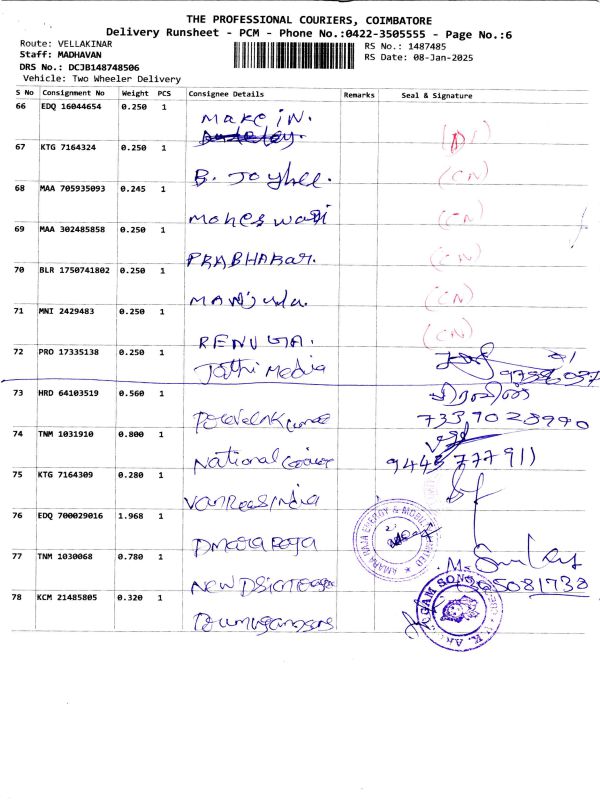 THE PROFESSIONAL COURIERS, COIMBATORE
Delivery Runsheet - PCM - Phone No.:0422-3505555 - Page No.:6
Route: VELLAKINAR
RS No.: 1487485
Staff: MADHAVAN
RS Date: 08-Jan-2025
DRS No.: DCJB148748506
Vehicle: Two Wheeler Delivery
S No Consignment No Weight PCS Consignee Details Remarks Seal & Signature
66 EDQ 16044654 0.250 1 Make in.
67 KTG 7164324 0.250 1 B.
(CN)
68 MAA 705935093 0.245 1
(CN)
69 MAA 302485858 0.250 1 PRABHAKAR.
(CN)
70 BLR 1750741802 0.250 1 Manjula.
(CN)
71 MNI 2429483 0.250 1 RENUGA.
(CN)
72 PRO 17335138 0.250 1 Jothi Media
73 HRD 64103519 0.560 1
7339028990
74 TNM 1031910 0.800 1 National
9445777911
75 KTG 7164309 0.280 1 VanRees India
76 EDQ 700029016 1.968 1
AMARA RAJA ENERGY & MOBILITY LIMITED
77 TNM 1030068 0.780 1 New
78 KCM 21485805 0.320 1